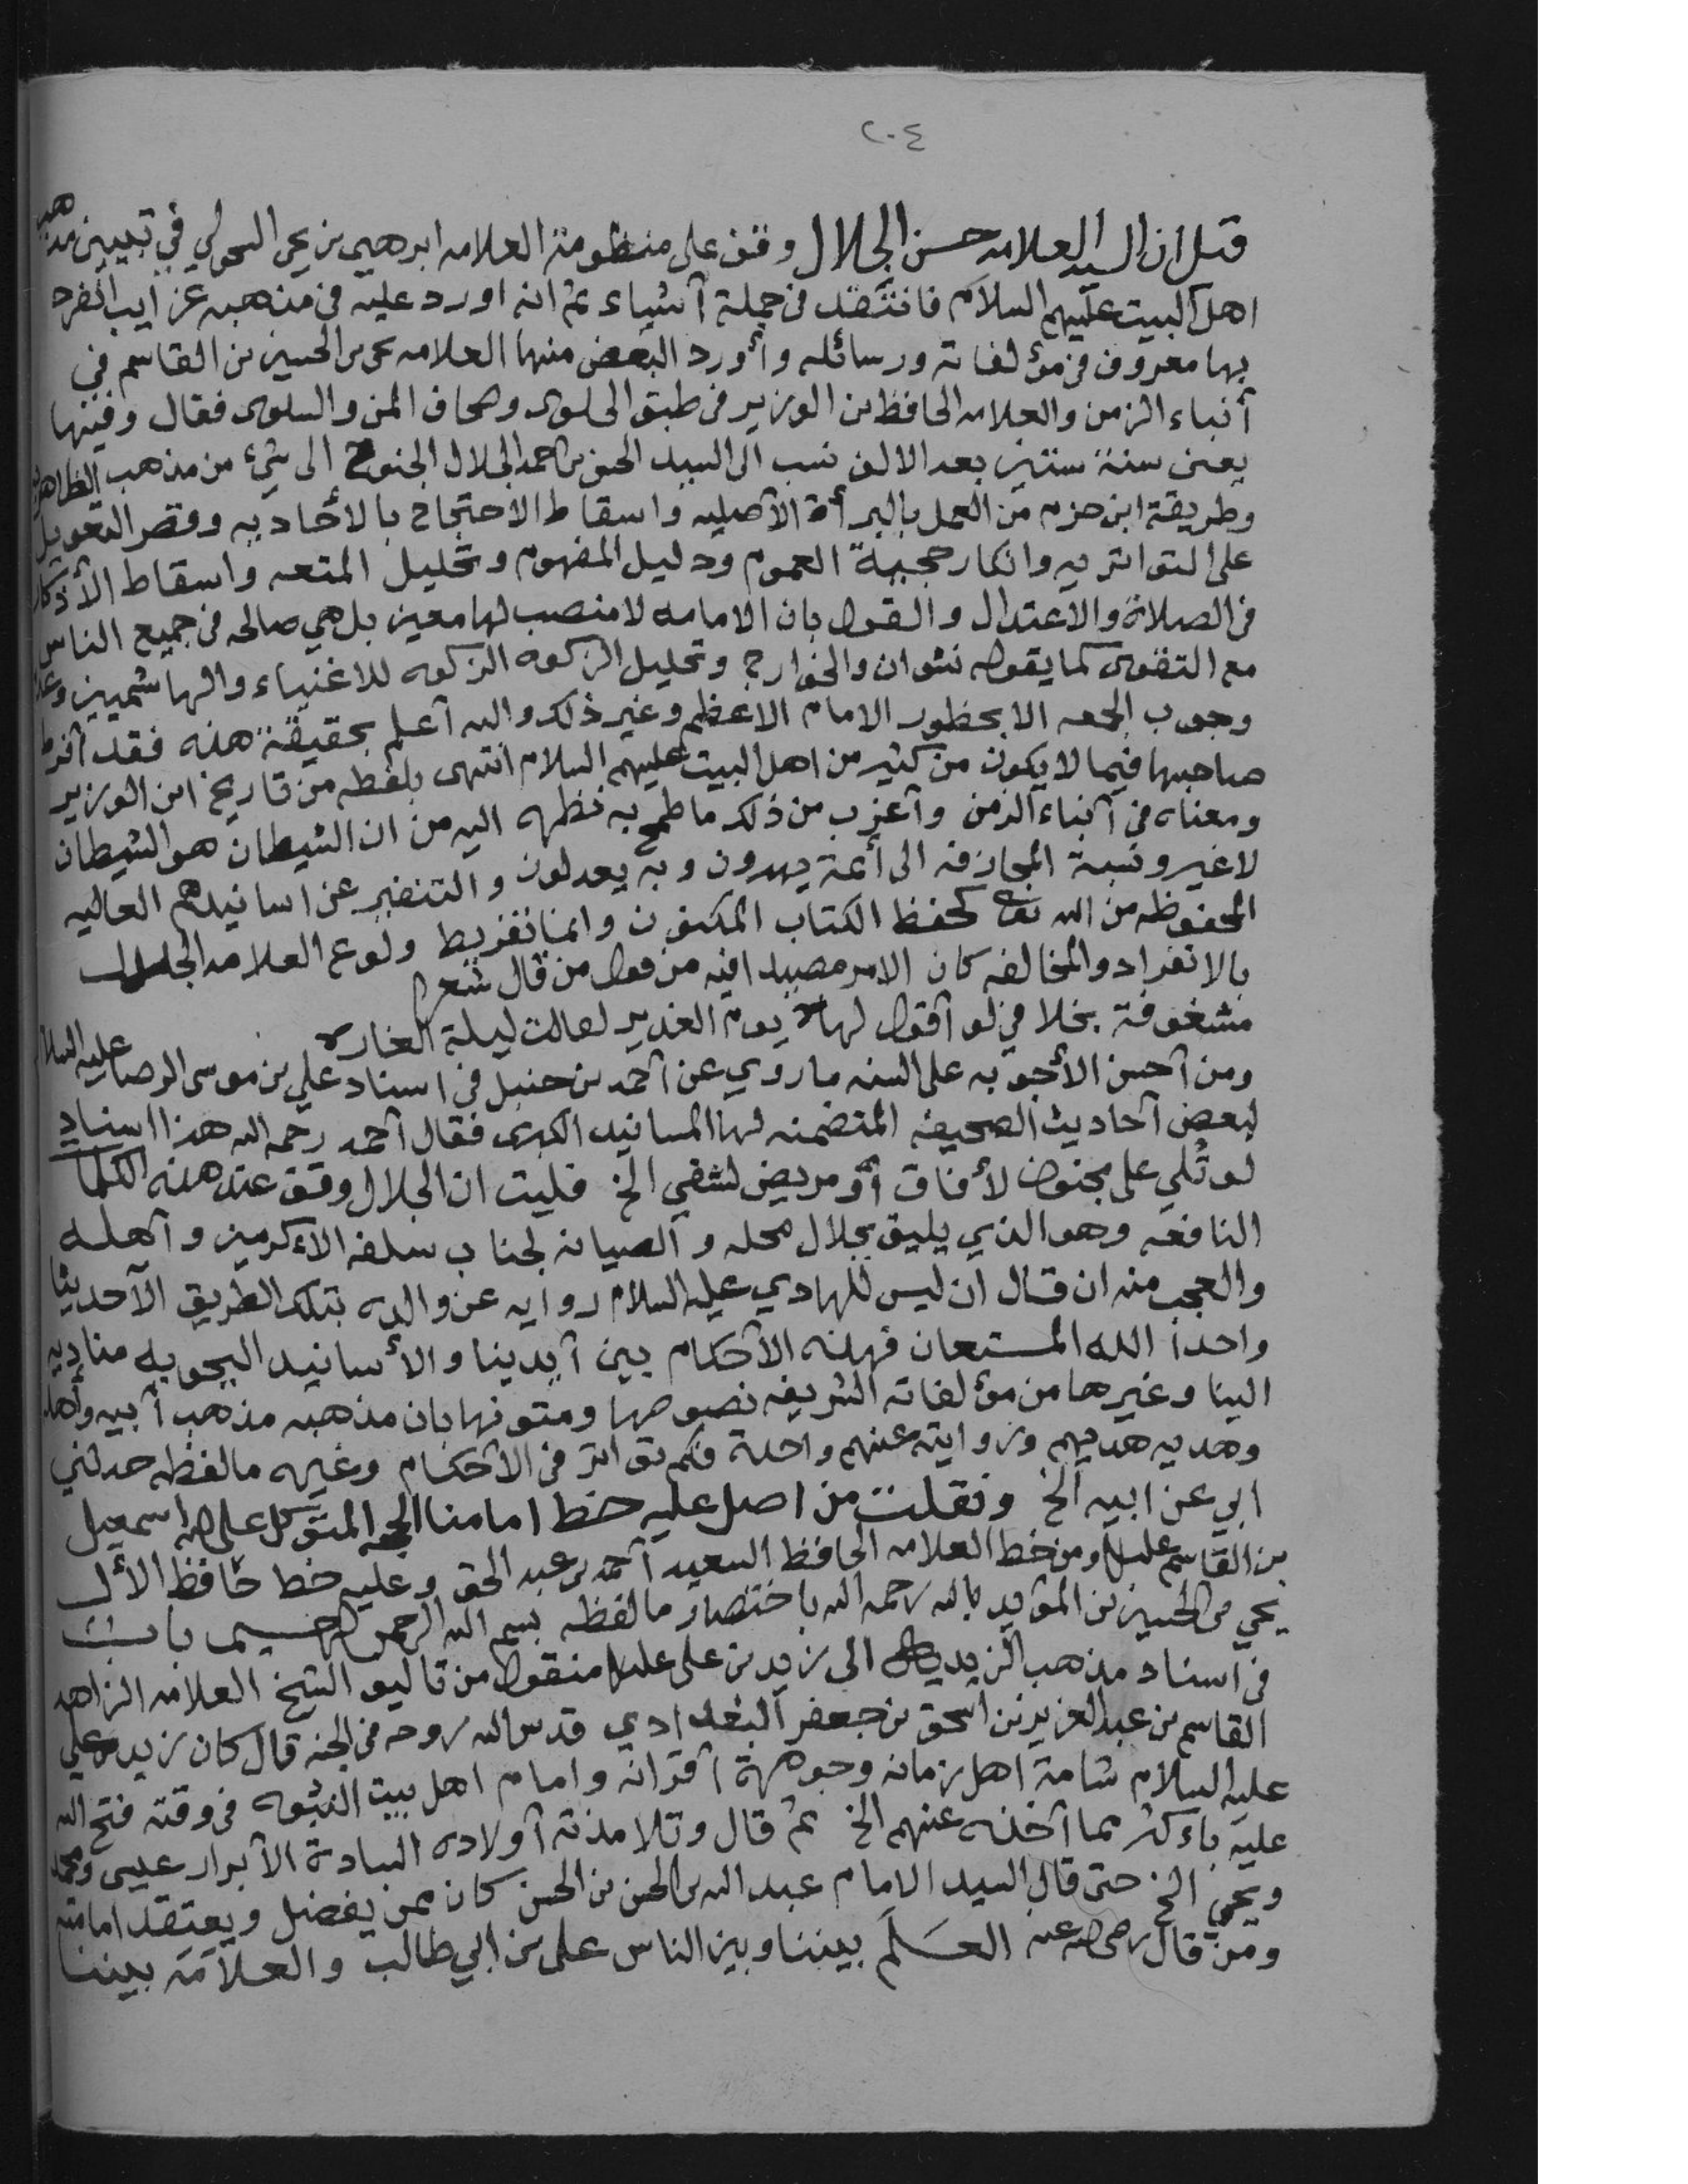 ٢٠٤
قتل ان السيد العلامه حسن الجلال وقف على منظومة العلامه ابرهيم بن يحى السحولي في تبيين مذهب
اهل البيت عليهم السلام فانتقد في جملة أشياء ثم انه اورد عليه في مذهبه غرايب انفرد
بها معروف في مؤلفاته ورسائله وأورد البعض منها العلامه يحى بن الحسين بن القاسم في
أنباء الزمن والعلامه الحافظ بن الوزير في طبق الحلوى وصحاف المن والسلوى فقال وفيها
يعنى سنة ستين بعد الالف نسب الى السيد الحسن بن احمد الجلال الجنوح الى شيء من مذهب الظاهريه
وطريقة ابن حزم من العمل بالبرأة الأصليه واسقاط الاحتجاج بالأحاديه وقصر التعويل
على المتواتريه وانكار حجية العموم ودليل المفهوم وتحليل المتعه واسقاط الأذكار
في الصلاة والاعتدال والقول بان الامامه لا منصب لها معين بل هي صالحه في جميع الناس
مع التقوى كما يقوله نشوان والخوارج وتحليل الزكوه الزكوه للاغنياء والهاشميين وعدم
وجوب الجمعه الا بحظور الامام الاعظم وغير ذلك والله أعلم بحقيقة هذه فقد أفرط
صاحبها فيما لا يكون من كثير من اهل البيت عليهم السلام انتهى بلفظه من تاريخ ابن الوزير
ومعناه في أنباء الزمن وأغرب من ذلك ما طمح به نظمه اليه من ان الشيطان هو الشيطان
لا غير ونسبة المجازفه الى أئمة يهدون وبه يعدلون والتنفير عن اسانيدهم العاليه
المحفوظه من الله تعالى كحفظ الكتاب المكنون وانما تفريط ولوع العلامه الجلال
بالانفراد والمخالفه كان الامر مصيدا فيه من قول من قال شعرا
مشغوفة بخلافي لو أقول لها يوم الغدير لقالت ليلة الغاره
ومن أحسن الأجوبه على السنه ما روي عن أحمد بن حنبل في اسناد علي بن موسى الرضا عليه السلام
لبعض أحاديث الصحيفه المتضمنه لها المسانيد الكبرى فقال أحمد رحمه الله هذا اسناد
لو تُلي على مجنون لأفاق أو مريض لشفي الخ فليت ان الجلال وقف عند هذه الكلمات
النافعه وهو الذي يليق بجلال محله والصيانه لجناب سلفه الأكرمين وأهله
والعجب منه ان قال أن ليس للهادي عليه السلام روايه عن والده بتلك الطريق الا حديثا
واحدا الله المستعان فهذه الأحكام بين أيدينا والأسانيد اليحيويه مناديه
الينا وغيرها من مؤلفاته الشريفه نصوصها ومتونها بان مذهبه مذهب أبيه وأهله
وهديه هديهم وروايته عنهم واحدة فكم تواتر في الأحكام وغيره ما لفظه حدثني
ابي عن ابيه الخ ونقلت من اصل عليه خط امامنا الحجه المتوكل على الله اسمعيل
بن القاسم عليلم ومن خط العلامه الحافظ السعيد أحمد بن عبد الحق وعليه خط حافظ الأل
يحي بن الحسين بن المؤيد بالله رحمه الله باختصار ما لفظه بسم الله الرحمن الرحيم باب
في اسناد مذهب الزيديه الى زيد بن على عليلم منقول من تاليف الشيخ العلامه الزاهد
القاسم بن عبد العزيز بن اسحق بن جعفر البغدادي قدس الله روحه في الجنه قال كان زيد بن علي
عليه السلام شامة اهل زمانه وجوهرة أقرانه وامام اهل بيت النبوه في وقته فتح الله
عليه باكثر مما أخذه عنهم الخ ثم قال وتلامذته أولاده السادة الأبرار عيسى ومحمد
ويحي الخ حتى قال السيد الامام عبد الله بن الحسن بن الحسن كان ممن يفضل ويعتقد امامته
ومن قال رضى الله عنه العَلَم بيننا وبين الناس على بن ابي طالب والعلامَة بيننا